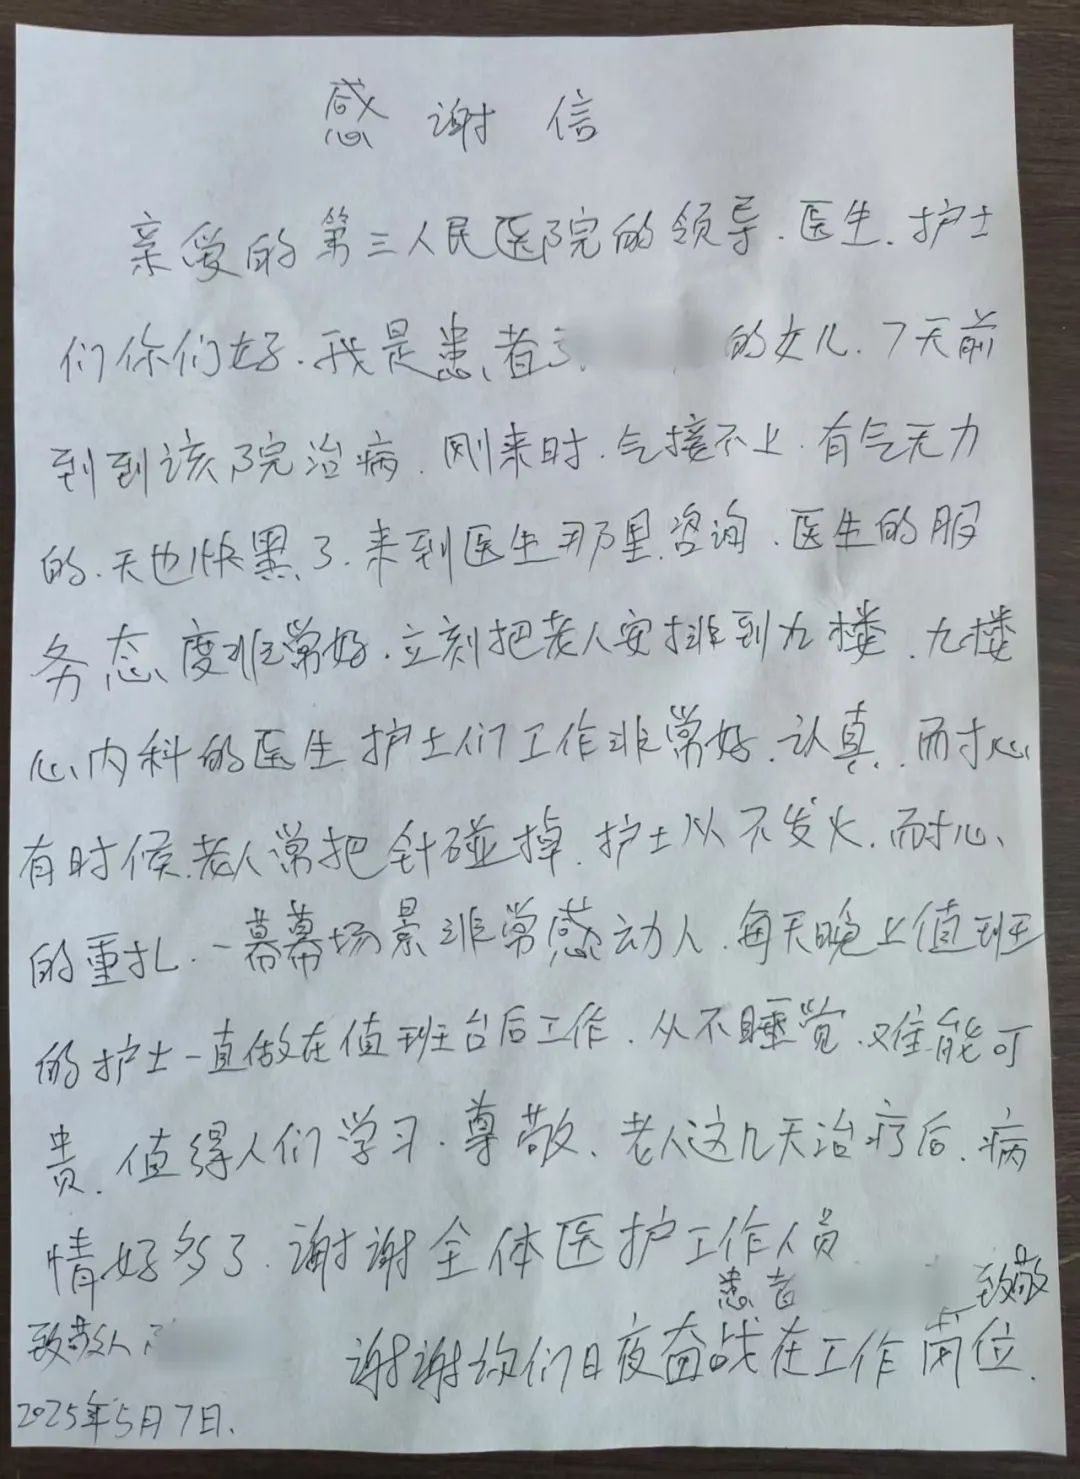 感谢信
亲爱的第三人民医院的领导.医生.护士
们你们好.我是患者 的女儿.7天前
到到该院治病.刚来时.气接不上.有气无力
的.天也快黑了.来到医生那里咨询.医生的服
务态度非常好.立刻把老人安排到九楼.九楼
心内科的医生护士们工作非常好.认真.耐心
有时候.老人常把针碰掉.护士从不发火.耐心
的重扎.一幕幕场景非常感动人.每天晚上值班
的护士一直做在值班台后工作.从不睡觉.难能可
贵.值得人们学习.尊敬.老人这几天治疗后.病
情好多了.谢谢全体医护工作人员
患者 致敬
致敬人
谢谢你们日夜奋战在工作岗位.
2025年5月7日.